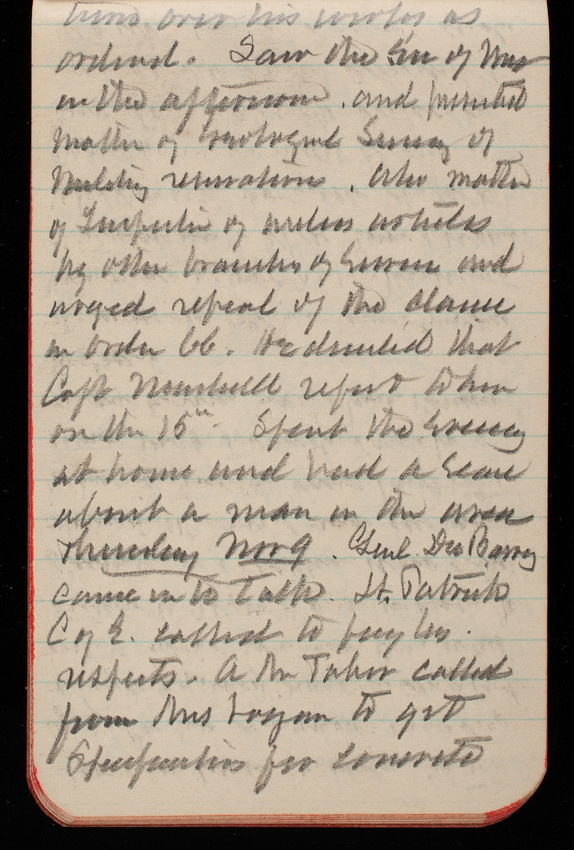 turn over his works as
ordered. Saw the Sec of War
in the afternoon. and presented
matter of Geological Survey of
Military reservations. Also matter
of Inspection of articles
by other branches of Service and
urged repeal of the clause
in order 66. He directed that
Capt report to him
on the 15th. Spent the Evening
at home and had a Scare
about a man in the area
Thursday Nov 9. Genl Du Barry
came in to talk. Lt. Patrick
C of E. called to pay his
respects. A Mr Taber called
from Mrs Logan to get
Specifications for concrete